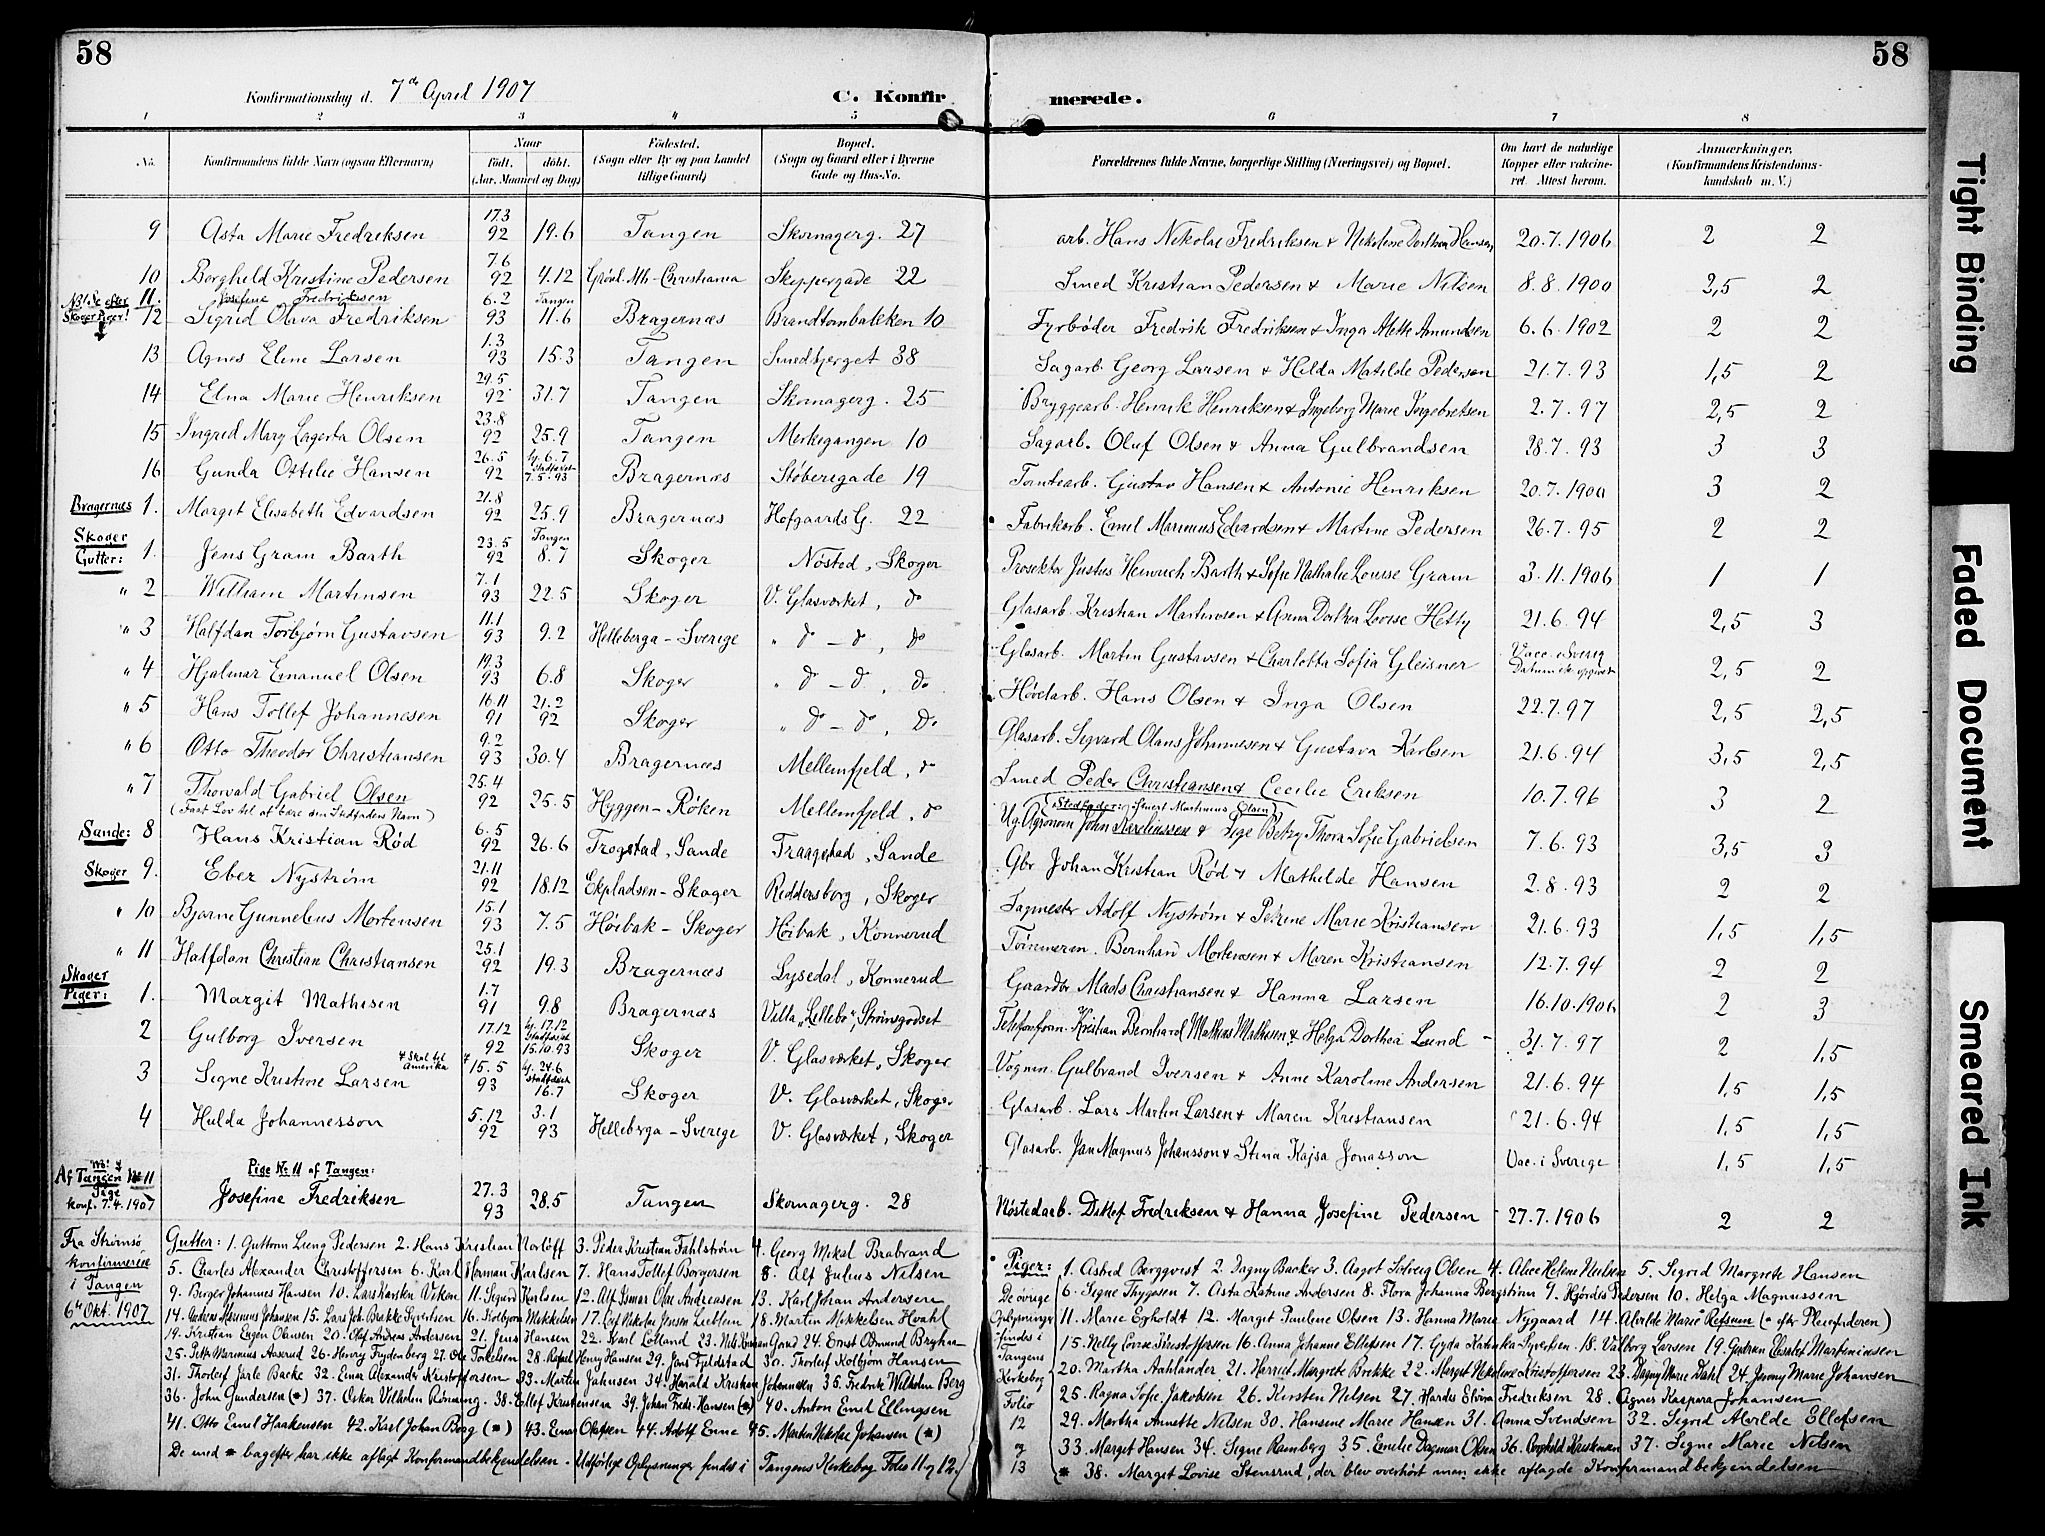 58
Konfirmationsdag d. 7de April 1907
C. Konfir
1 2 3 4 5
No.
Konfirmandens fulde Navn (ogsaa Efternavn)
Naar
födt. döbt.
(Aar, Maaned og Dag)
Födested.
(Sogn eller By og paa Landet tillige Gaard)
Bopæl.
(Sogn og Gaard eller i Byerne Gade og Hus-No.
9 Asta Marie Fredriksen 17.3 92 19.6 Tangen Skomagerg. 27
10 Borghild Kristine Pedersen 7.6 92 4.12 Grönl. Mh-Christiania Skippergade 22
No 11 Se efter Skoger Piger! 11. Josefine Fredriksen Tangen
12 Sigrid Olava Fredriksen 6.2 93 11.6 Bragernæs Brandtombakken 10
13 Agnes Eline Larsen 1.3 93 15.3 Tangen Smedbjerget 38
14 Elna Marie Henriksen 29.5 92 31.7 Tangen Skomagerg. 25
15 Ingrid Mary Lagerta Olsen 23.8 92 25.9 Tangen Merkegangen 10
16 Gunda Ottilie Hansen 26.5 92 hj. 6.7 Stadfæstet 7.5.93 Bragernæs Støberigade 19
Bragernæs 1. Margit Elisabeth Edvardsen 21.8 92 25.9 Bragernæs Hofgaards G. 22
Skoger Gutter: 1. Jens Gram Barth 23.5 92 Tangen 8.7 Skoger Nøsted, Skoger
" 2 William Martinsen 7.1 93 22.5 Skoger V. Glasværket, do
" 3 Halfdan Torbjørn Gustavsen 11.1 93 9.2 Helleberga - Sverige " do - do, do
" 4 Hjalmar Emanuel Olsen 19.3 93 6.8 Skoger " do - do, do
" 5 Hans Tollef Johannesen 16.11 91 21.2 92 Skoger " do - do, do
" 6 Otto Theodor Christiansen 9.2 93 30.4 Bragernæs Mellemfjeld, do
" 7 Thorvald Gabriel Olsen 25.4 92 25.5 Hyggen - Røken Mellemfjeld, do
(Faat Lov til at bære sin Stedfaders Navn)
Sande: 8 Hans Kristian Rød 6.5 92 26.6 Trogstad, Sande Traagstad, Sande
Skoger 9. Eber Nystrøm 21.11 92 18.12 Ekpladsen - Skoger Riddersborg, Skoger
" 10 Bjarne Gunnelius Mortensen 15.1 93 7.5 Höibak - Skoger Höibak, Konnerud
" 11 Halfdan Christian Christiansen 25.1 92 19.3 Bragernæs Lysedal, Konnerud
Skoger Piger: 1. Margit Mathisen 1.7 91 9.8 Bragernæs Villa "Lillebo", Strömsgodset
2 Gulborg Iversen 17.12 92 hj. 17.12 Stadfæstet 15.10.93 Skoger V. Glasværket, Skoger
3 Signe Kristine Larsen + Skal til Amerika + 15.5 93 hj. 24.6 Stadfæstet 16.7 Skoger V. Glasværket, Skoger
4 Hulda Johannesson 5.12 92 3.1 93 Helleberga - Sverige V. Glasværket, Skoger
Pige No. 11 af Tangen:
Af Tangen No 11 Pige konf. 7.4.1907 Josefine Fredriksen 27.3 93 28.5 Tangen Skomagerg. 28
Fra Strömsö konfirmerede i Tangen 6te Okt. 1907
Gutter: 1. Guttorm Lieng Pedersen 2. Hans Kristian Norløff 3. Peder Kristian Fahlström 4. Georg Mikal Brabrand
5. Charles Alexander Christoffersen 6. Karl Herman Karlsen 7. Hans Tollef Borgersen 8. Alf Julius Nilsen
9. Birger Johannes Hansen 10. Lars Karsten Viken 11. Sigurd Karlsen 12. Alf Ismar Olav Andreasen 13. Karl Johan Andersen
14. Andreas Marenius Johansen 15. Lars Joh. Brekke Syvertsen 16. Kolbjørn Mikkelsen 17. Leif Nikolai Jensen Lieblein 18. Martin Mikkelsen Hvahl
19. Kristian Eugen Olausen 20. Olaf Andreas Andersen 21. Jens Hansen 22. Karl Lolland 23. Nils Gord 24. Ernst Odmund
25. Petter Marinius Aaserud 26. Henry Frydenberg 27. Ole Tokelsen 28. Rafael Henry Hansen 29. Jens Fjeldstad 30. Thorleif Kolbjörn Hansen
31. Thorleif Jarle Backe 32. Einar Alexander Kristoffersen 33. Martin Jahnsen 34. Harald Kristian Johannesen 35. Fredrik Wilhelm Berg
36. John Gundersen (*) 37. Oskar Vilhelm Rönning. 38. Ellef Kristensen 39. Johan Fredr. Hansen (*) 40. Anton Emil Ellingsen
41. Otto Emil Haakensen 42. Karl Johan Borg (*) 43. Einar Olafsen 44. Adolf Enne 45. Martin Nikolai Johansen (*)
De med * bagefter har ikke aflagt Konfirmandbekjendelsen. Udførlige Oplysninger findes i Tangens Kirkebog Folio 11 og 12.
58
merede.
6 7 8
Forældrenes fulde Navne, borgerlige Stilling (Næringsvei) og Bopæl.
Om havt de naturlige Kopper eller vakcineret. Attest herom.
Anmærkninger.
(Konfirmandens Kristendomskundskab m. V.)
arb. Hans Nikolai Fredriksen & Nikoline Dorthea Hansen 20.7.1906 2 2
Smed Kristian Pedersen & Marie Nilsen 8.8.1900 2,5 2
Fyrbøder Fredrik Fredriksen & Inga Mette Amundsen 6.6.1902 2 2
Sagarb. Georg Larsen & Hilda Matilde Pedersen 21.7.93 1,5 2
Bryggearb. Henrik Henriksen & Ingeborg Marie Ingebretsen 2.7.97 2,5 2
Sagarb. Oluf Olsen & Anna Gulbrandsen 28.7.93 3 3
Tomtearb. Gustav Hansen & Antonie Henriksen 20.7.1900 3 2
Fabrikarb. Emil Marinius Edvardsen & Martine Pedersen 26.7.95 2 2
Prosektor Justus Heinrich Barth & Sofie Nathalie Louise Gram 3.11.1906 1 1
Glasarb. Kristian Martinsen & Anna Dorthea Lovise Hetty 21.6.94 2,5 3
Glasarb. Martin Gustavsen & Charlotta Sofia Gleisner Vacc. i Sverig Datum ik. opgivet 2,5 2
Høvelarb. Hans Olsen & Inga Olsen 22.7.97 2,5 2,5
Glasarb. Sigvard Olaus Johannesen & Gustava Karlsen 21.6.94 3,5 2,5
Smed Peder Christiansen & Cecilie Eriksen 10.7.96 3 2
(Stedfader: Martinius Olsen)
Ug. Agronom John Axelinssen & Pige Betzy Thora Sofie Gabrielsen 7.6.93 3,5 3
Gbr Johan Kristian Rød & Mathilde Hansen 2.8.93 2 2
Sagmester Adolf Nyström & Petrine Marie Kristiansen 21.6.93 1,5 1,5
Tömmerm. Bernhard Mortensen & Maren Kristiansen 12.7.94 2 2
Gaardbr Mads Christiansen & Hanna Larsen 16.10.1906 2 3
Telefonform. Kristian Bernhard Mathias Mathisen & Helga Dorthea Lund 31.7.97 2 1,5
Vognm. Gulbrand Iversen & Anne Karoline Andersen 21.6.94 1,5 1,5
Glasarb. Lars Martin Larsen & Maren Kristiansen 21.6.94 1,5 1,5
Glasarb. Jan Magnus Johansson & Stina Kajsa Jonasson Vac. i Sverige 1,5 1,5
Nöstedarb. Ditlef Fredriksen & Hanna Josefine Pedersen 27.7.1906 2 2
De øvrige Oplysninger findes i Tangens Kirkebog Folio 12 og 13
Piger: 1. Astrid Bergqvist 2. Dagny Backer 3. Aagot Solveig Olsen 4. Alice Helene Neilsen 5. Sigrid Margrete Hansen
6. Signe Thygesen 7. Asta Katrine Andersen 8. Flora Johanna Bergström 9. Hjördis Pedersen 10. Helga Magnussen
11. Marie Egholdt 12. Margit Pauline Olsen 13. Hanna Marie Nygaard 14. Alvilde Marie * Refsum (* efter Pleiefaderen)
15. Nelly Kristoffersen 16. Anna Johanne Ellefsen 17. Gyda Katinka Syvertsen. 18. Valborg Larsen 19. Gudrun Elisabet Martiniusen
20. Martha Aahlander 21. Harried Margrete Brekke 22. Margit Nikoline Kristoffersen 23. Dagny Marie Dahl 24. Jenny Marie Johansen
25. Ragna Sofie Jakobsen 26. Kirsten Nilsen 27. Hardis Elvira Fredriksen 28. Agnes Kaspara Johansen
29. Martha Annette Nilsen 30. Hansine Marie Hansen 31. Anna Svendsen 32. Sigrid Alvilde Ellefsen
33. Margit Hansen 34. Signe Ramberg 35. Emilie Dagmar Olsen 36. Borghild Kristensen 37. Signe Marie Nilsen
* 38. Margit Lovise Stensrud, der blev overhørt men ikke aflagde Konfirmandbekjendelsen
Tight Binding
Faded Document
Smeared Ink